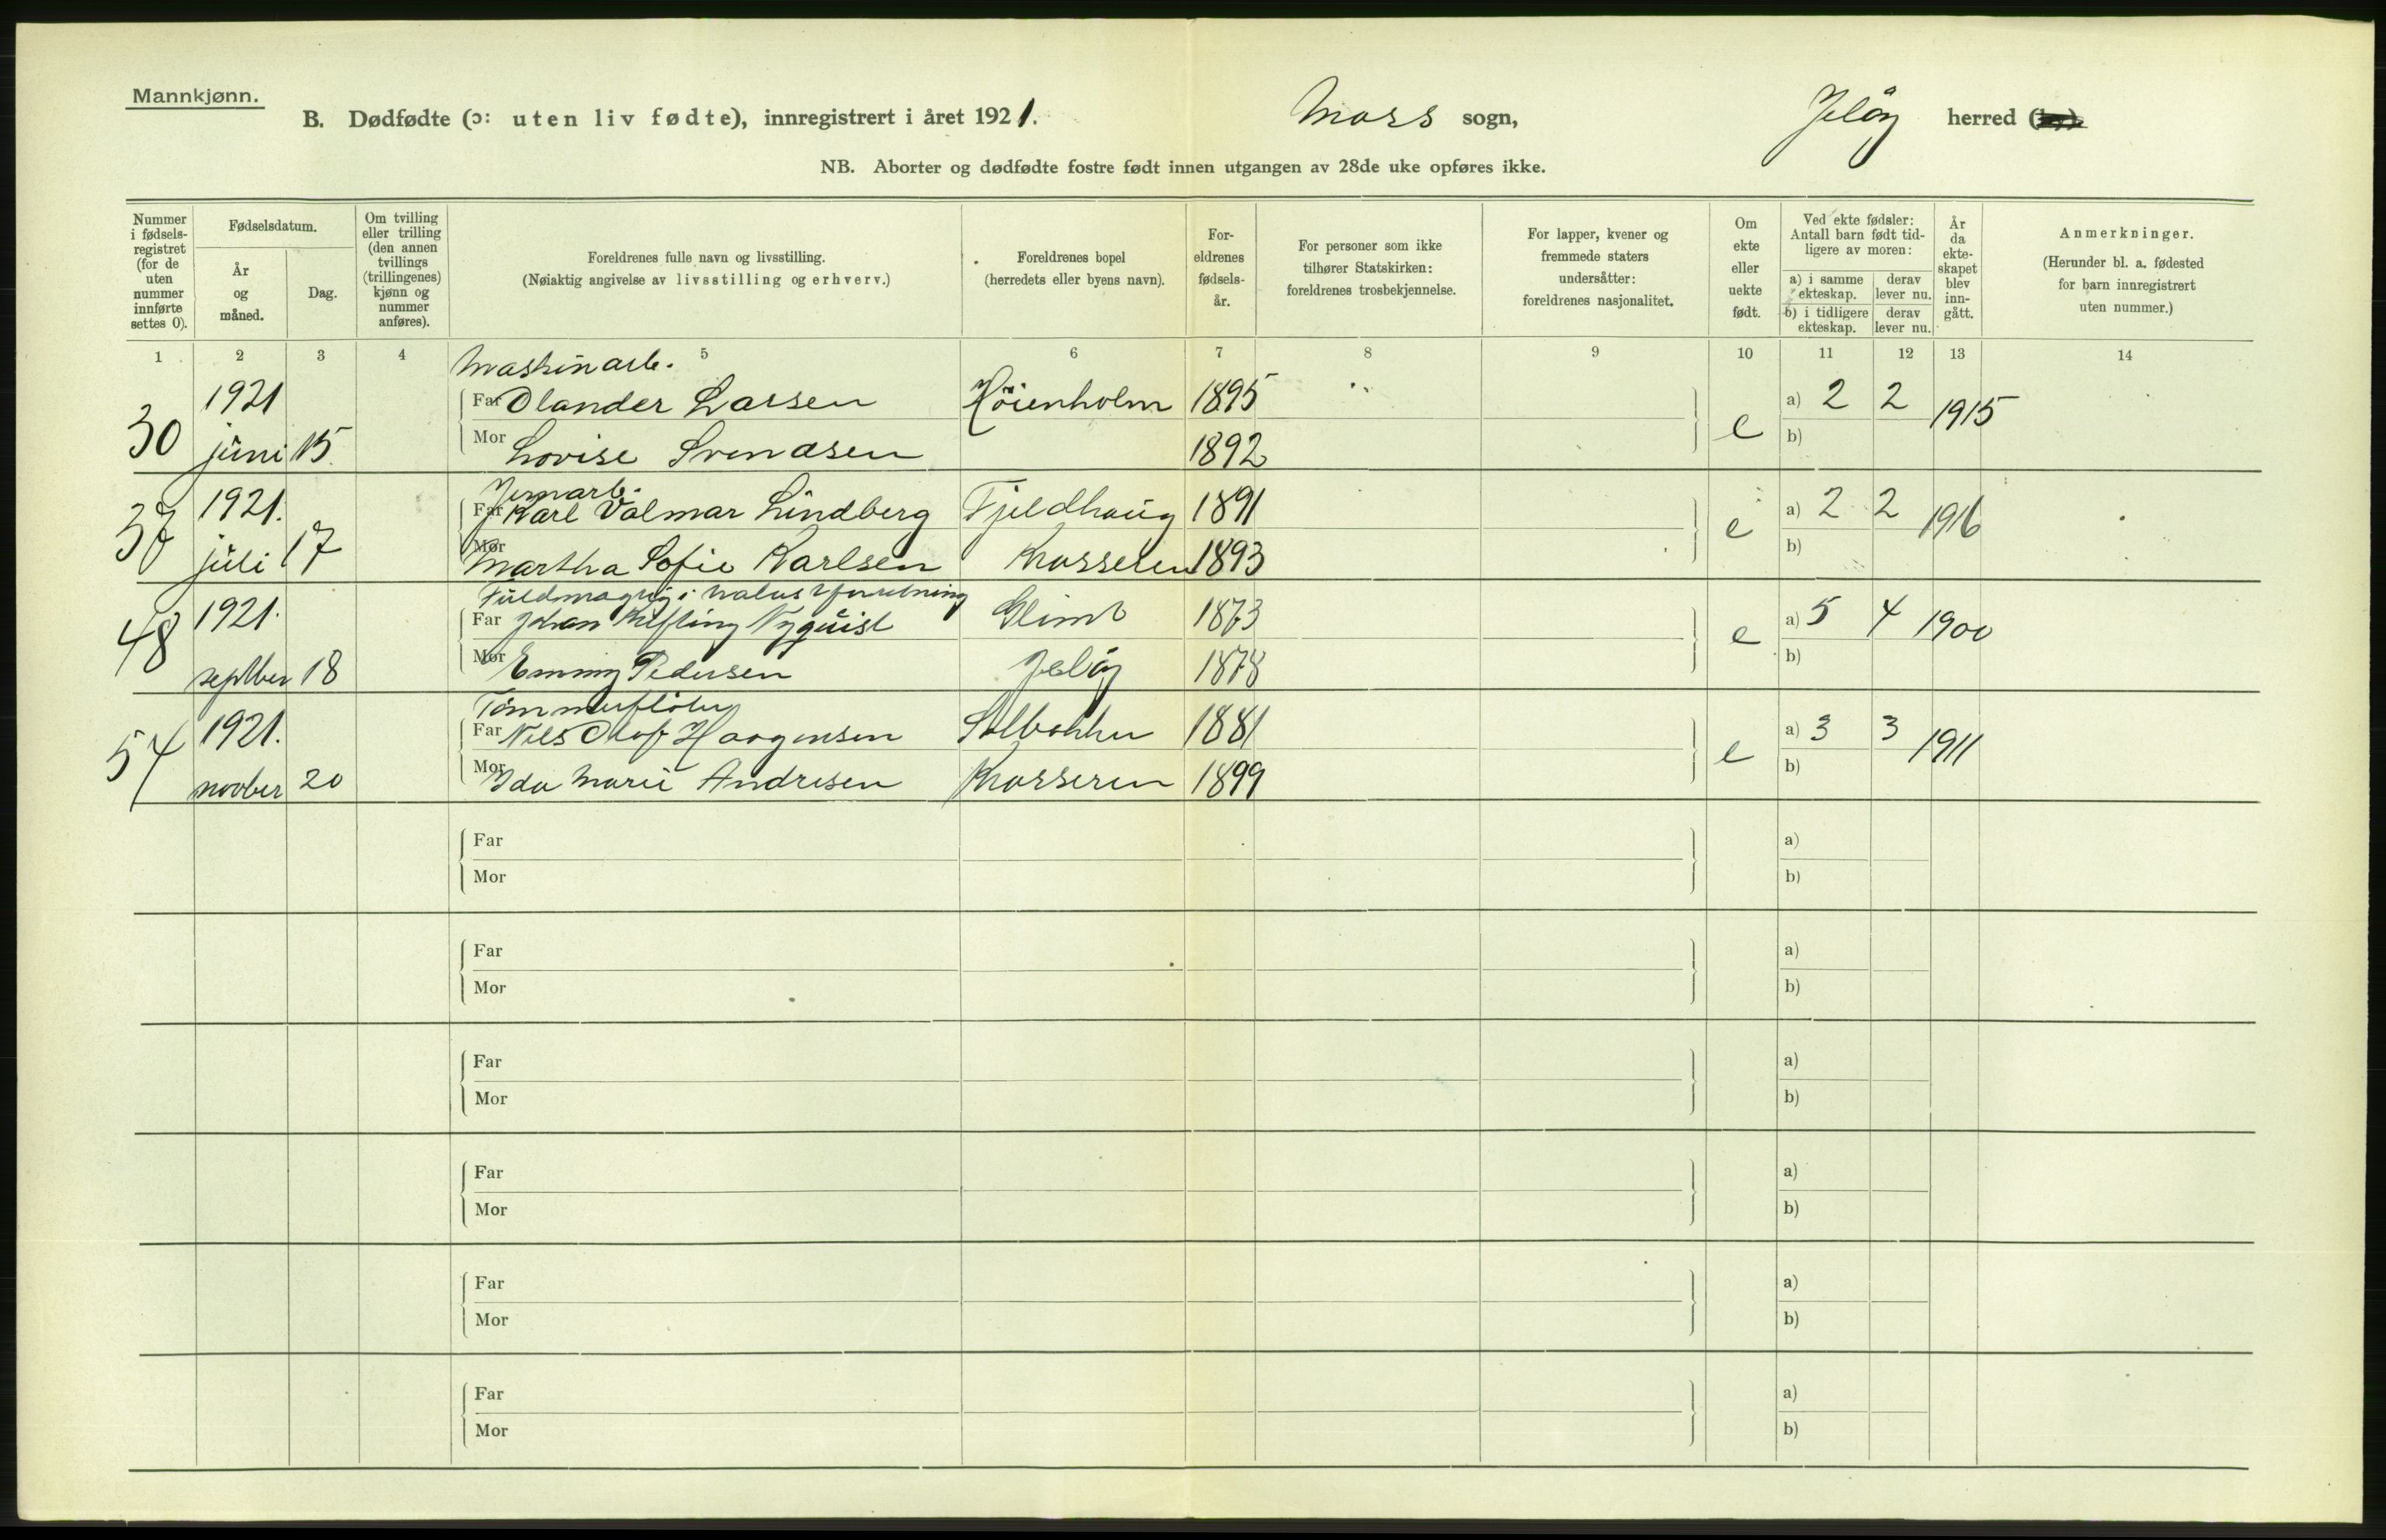 Mannkjønn.
B. Dødfødte (ɔ: uten liv fødte), innregistrert i året 1921. Moss sogn, Jeløy herred
NB. Aborter og dødfødte fostre født innen utgangen av 28de uke opføres ikke.
Nummer i fødsels-registret (for de uten nummer innførte settes 0).
Fødselsdatum.
År og måned.
Dag.
Om tvilling eller trilling (den annen tvillings (trillingenes) kjønn og nummer anføres).
Foreldrenes fulle navn og livsstilling.
(Nøiaktig angivelse av livsstilling og erhverv.)
Foreldrenes bopel
(herredets eller byens navn).
For-eldrenes fødsels-år.
For personer som ikke tilhører Statskirken: foreldrenes trosbekjennelse.
For lapper, kvener og fremmede staters undersåtter: foreldrenes nasjonalitet.
Om ekte eller uekte født.
Ved ekte fødsler: Antall barn født tid-ligere av moren:
a) i samme ekteskap. derav lever nu.
b) i tidligere ekteskap. derav lever nu.
År da ekte-skapet blev inn-gått.
Anmerkninger.
(Herunder bl. a. fødested for barn innregistrert uten nummer.)
1 2 3 4 5 6 7 8 9 10 11 12 13 14
Maskinarb.
30 1921 Far Olander Larsen Höienholm 1895 e a) 2 2 1915
juni 15 Mor Lovise Svendsen 1892 b)
Jernarb.
37 1921. Far Karl Valmar Lindberg Fjeldhaug 1891 e a) 2 2 1916
juli 17 Mor Martha Sofie Karlsen Krosseren 1893 b)
Fuldmægtig i
48 1921. Far Johan Nyquist Glimt 1873 e a) 5 4 1900
septber 18 Mor Emmy Pedersen Jelöy 1878 b)
Tömmerfløter
54 1921. Far Nils Olof Haagensen Solbakken 1881 e a) 3 3 1911
novber 20 Mor Ida Marie Andresen Krosseren 1899 b)
Far a)
Mor b)
Far a)
Mor b)
Far a)
Mor b)
Far a)
Mor b)
Far a)
Mor b)
Far a)
Mor b)